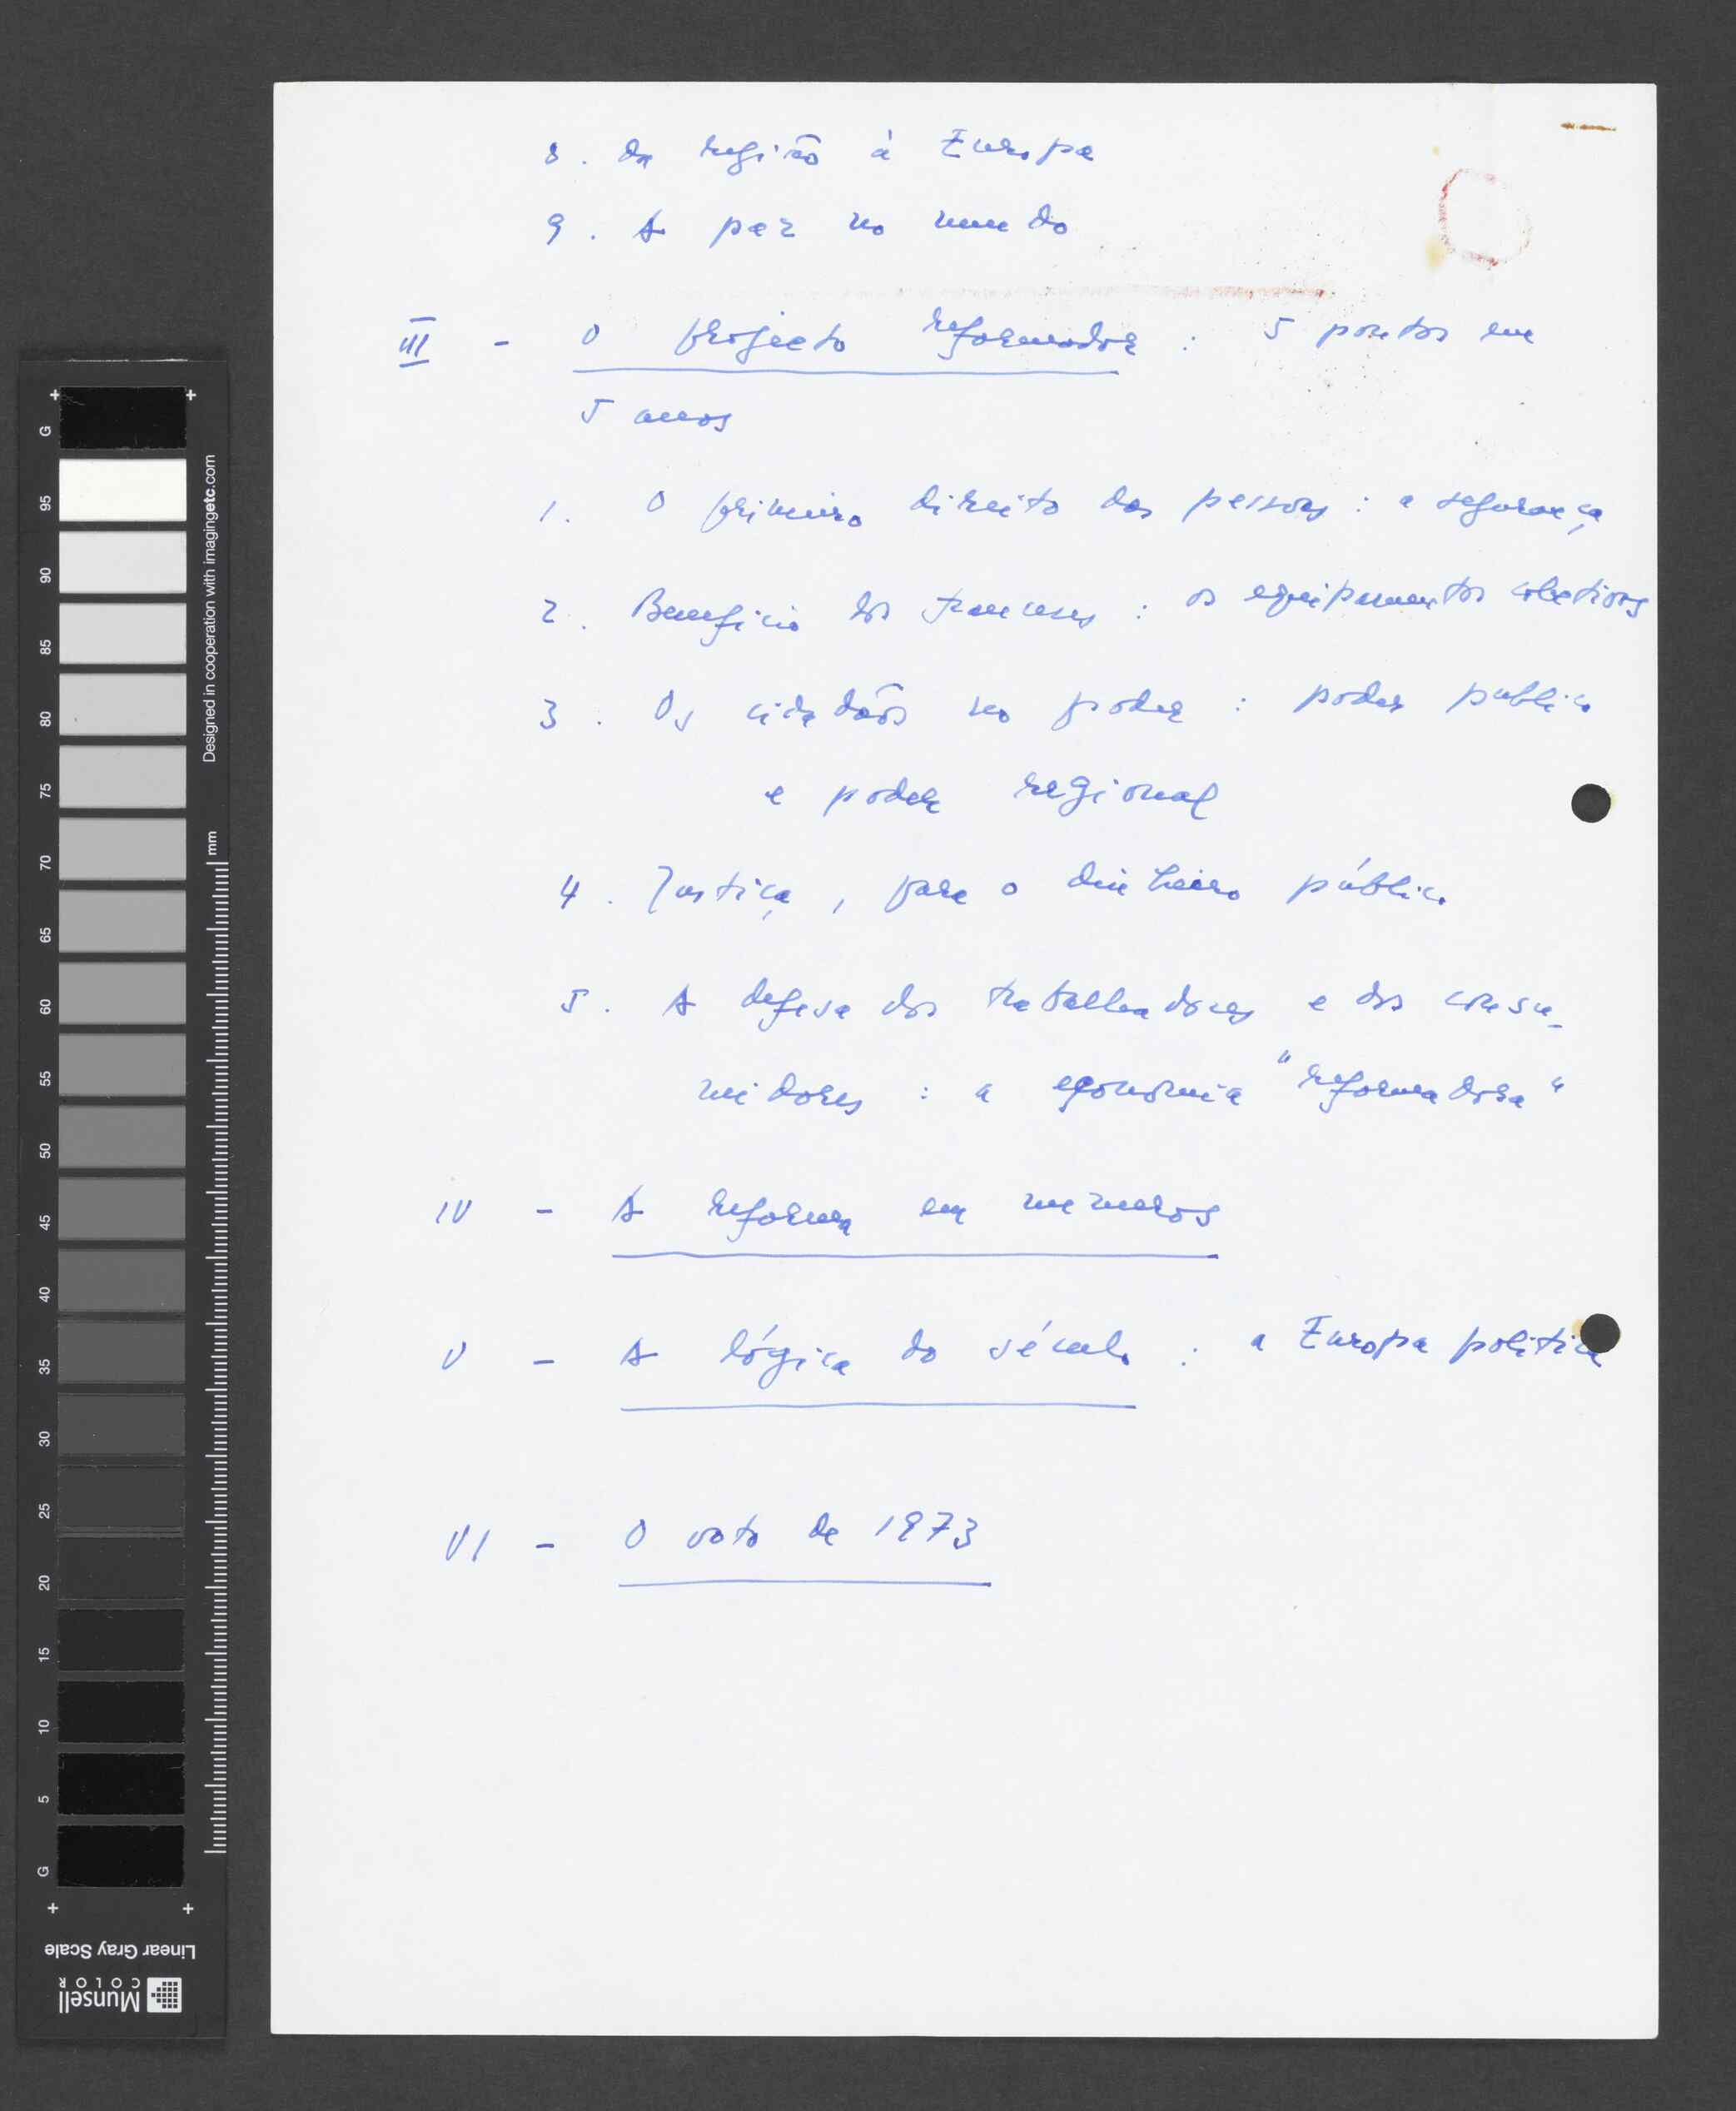 8. da região à Europa
9. A paz no mundo
III - O projecto reformador : 5 pontos em
5 anos
1. O primeiro direito das pessoas : a segurança
2. Beneficio dos franceses : os equipamentos colectivos
3. Os cidadãos no poder : poder publico
e poder regional
4. Justiça, para o dinheiro público
5. A defesa dos trabalhadores e dos consu-
midores : a economia "reformadora"
IV - A reforma em numeros
V - A lógica do século : a Europa politica
VI - O voto de 1973
G
95
90
85
80
75
70
65
60
55
50
45
40
35
30
25
20
15
10
5
G
Designed in cooperation with imagingetc.com
mm
Linear Gray Scale
Munsell
COLOR